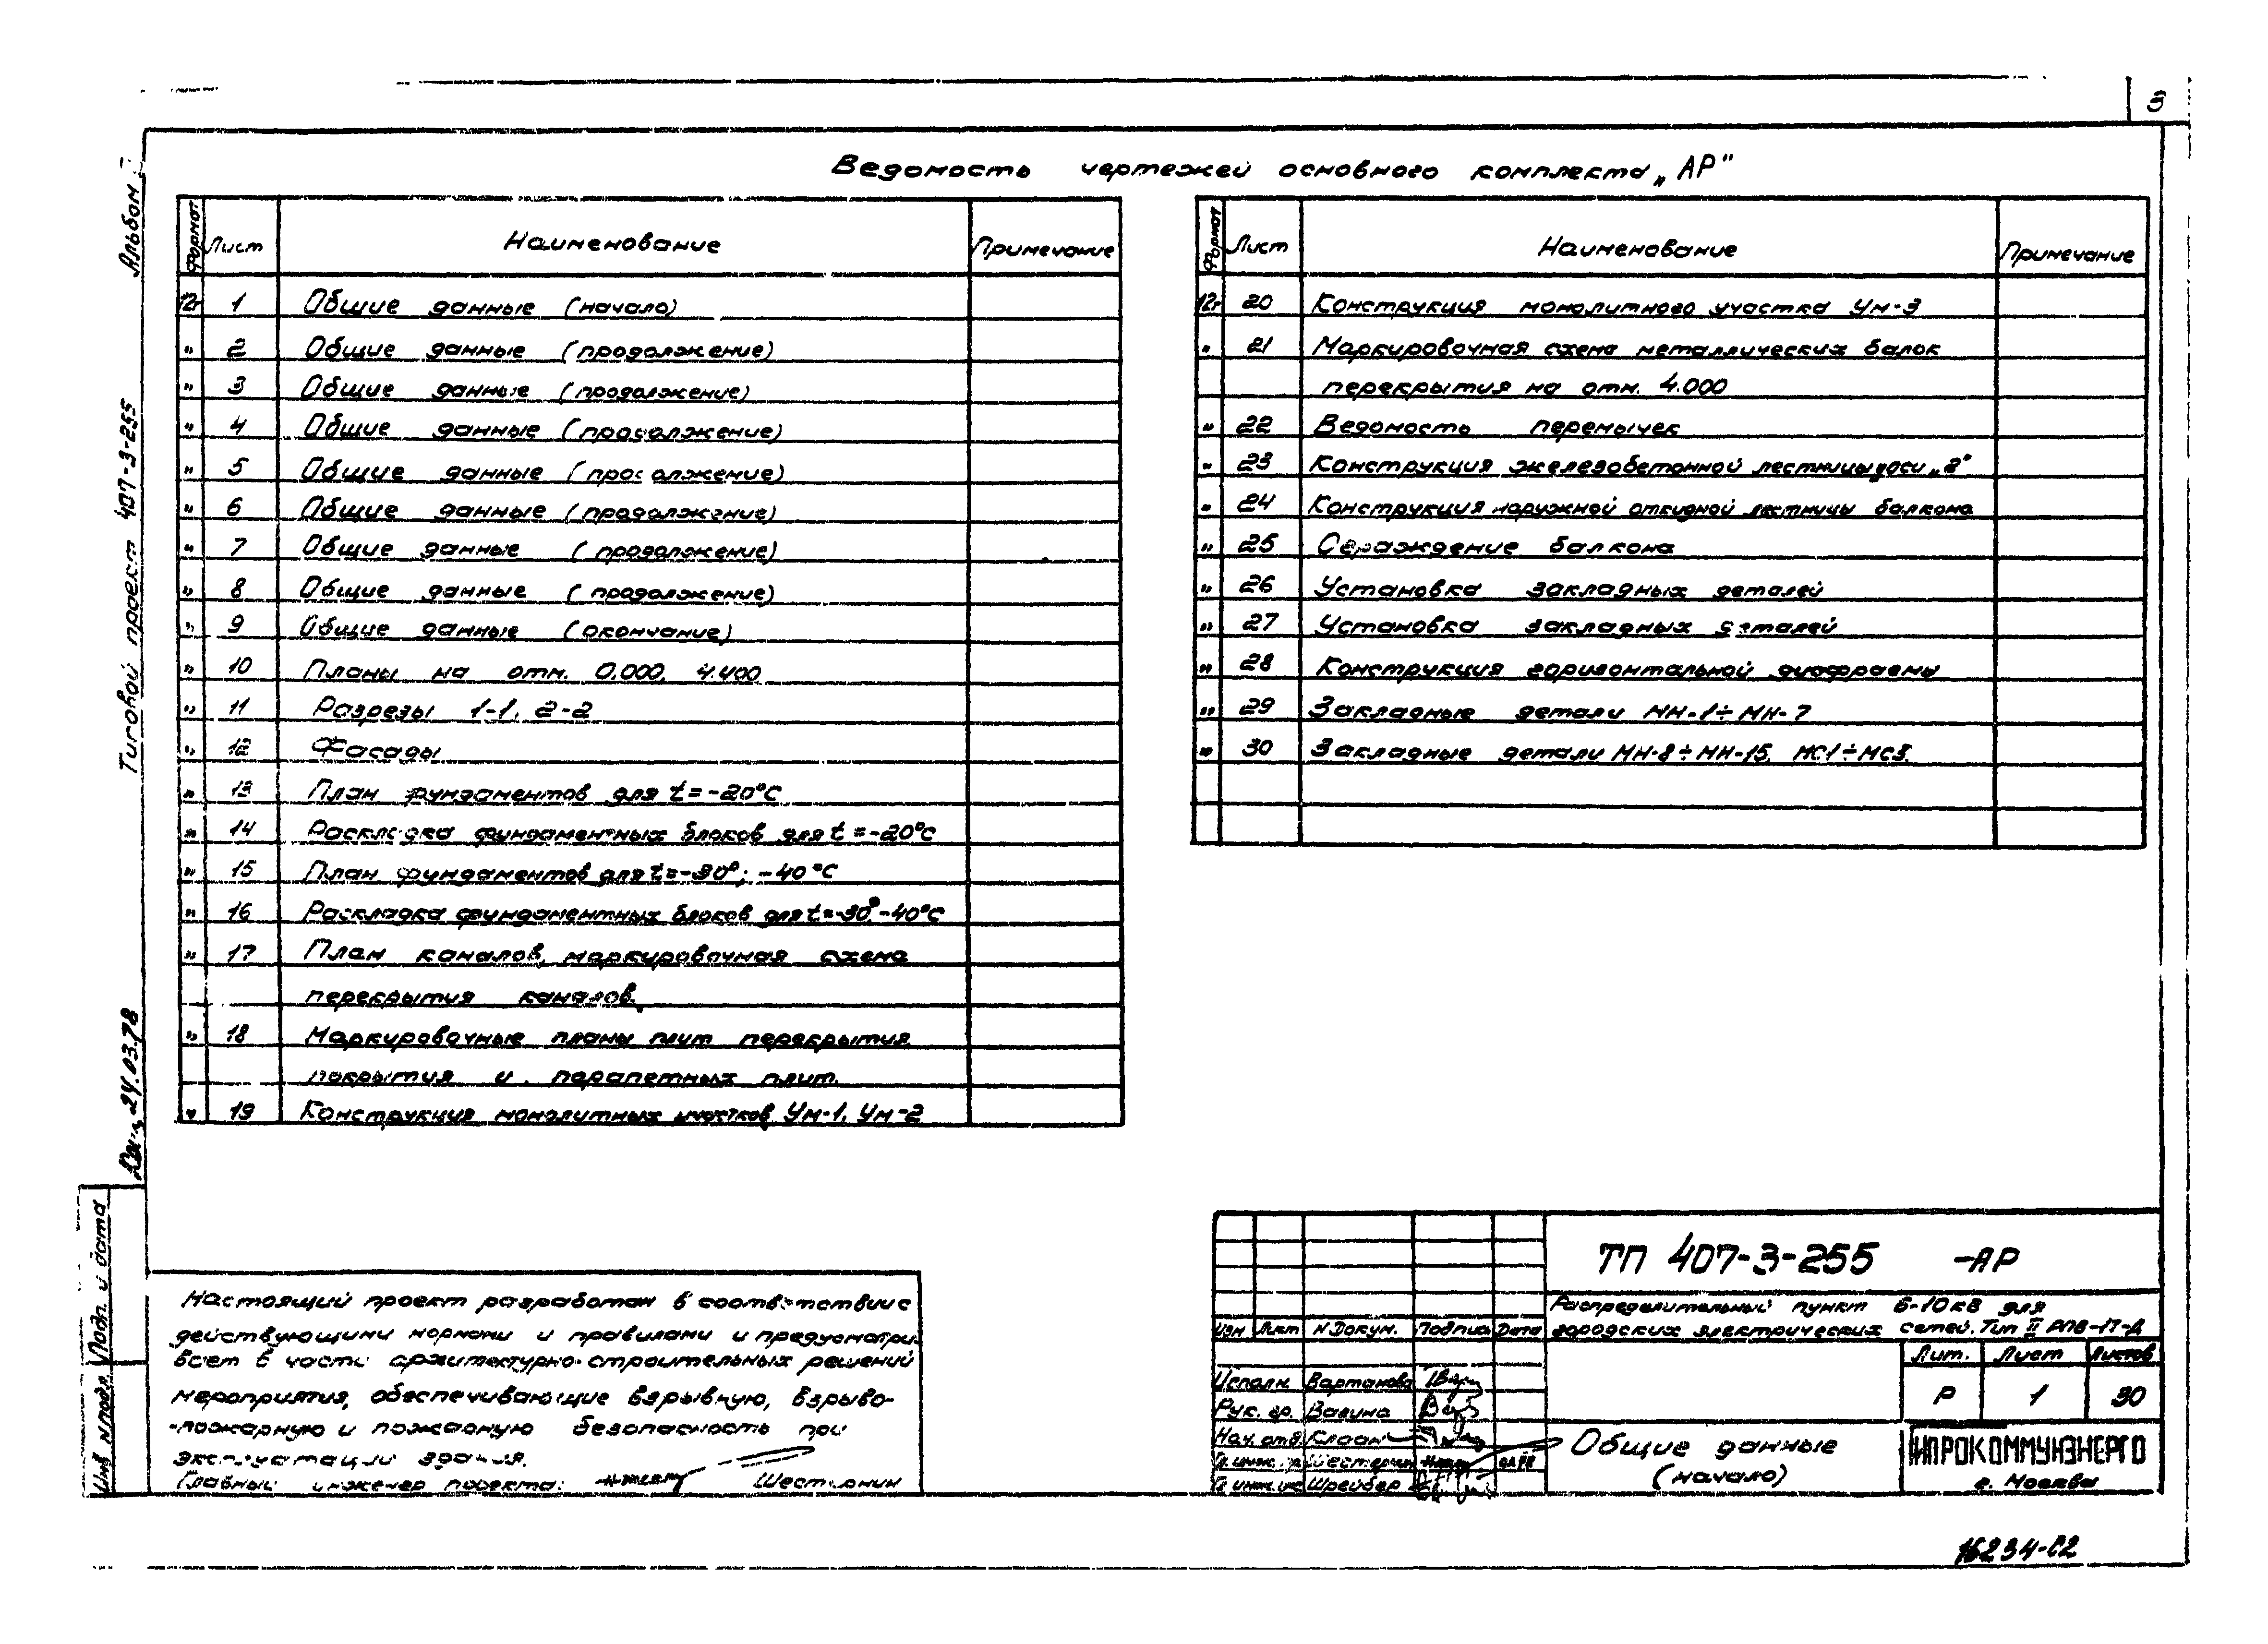 3
Ведомость чертежей основного комплекта „АР"
Формат Лист Наименование Примечание
12г 1 Общие данные (начало)
" 2 Общие данные (продолжение)
" 3 Общие данные (продолжение)
" 4 Общие данные (продолжение)
" 5 Общие данные (продолжение)
" 6 Общие данные (продолжение)
" 7 Общие данные (продолжение)
" 8 Общие данные (продолжение)
" 9 Общие данные (окончание)
" 10 Планы на отм. 0.000, 4.400
" 11 Разрезы 1-1, 2-2
" 12 Фасады
" 13 План фундаментов для t=-20°С
" 14 Раскладка фундаментных блоков для t=-20°С
" 15 План фундаментов для t=-30°; -40°С
" 16 Раскладка фундаментных блоков для t=-30°,-40°С
" 17 План каналов, маркировочная схема
перекрытия каналов.
" 18 Маркировочные планы плит перекрытия
покрытия и парапетных плит.
" 19 Конструкция монолитных участков Ум-1, Ум-2
Формат Лист Наименование Примечание
12г 20 Конструкция монолитного участка Ум-3
" 21 Маркировочная схема металлических балок
перекрытия на отм. 4.000
" 22 Ведомость перемычек
" 23 Конструкция железобетонной лестницы у оси „8"
" 24 Конструкция наружной откидной лестницы балкона
" 25 Ограждение балкона
" 26 Установка закладных деталей
" 27 Установка закладных деталей
" 28 Конструкция горизонтальной диафрагмы
" 29 Закладные детали МН-1÷МН-7
" 30 Закладные детали МН-8÷МН-15, МС1÷МС3.
Альбом
Типовой проект 407-3-255
24.03.78
Подп. и дата
Инв. N подл.
Настоящий проект разработан в соответствии с
действующими нормами и правилами и предусматри-
вает в части архитектурно-строительных решений
мероприятия, обеспечивающие взрывную, взрыво-
-пожарную и пожарную безопасность при
эксплуатации здания.
Главный инженер проекта: Шестернин
ТП 407-3-255 -АР
Распределительный пункт 6-10кв для
городских электрических сетей. Тип II РПВ-1Т-Д
Изм Лист N Докум. Подпись Дата
Лит. Лист Листов
Р 1 30
Исполн. Вартанова
Рук. гр. Вагина
Нач. отд.
Гл. инж. пр. Шестернин
Гл. инж. ин. Шрейбер
Общие данные
(начало)
ГИПРОКОММУНЭНЕРГО
г. Москва
16234-02